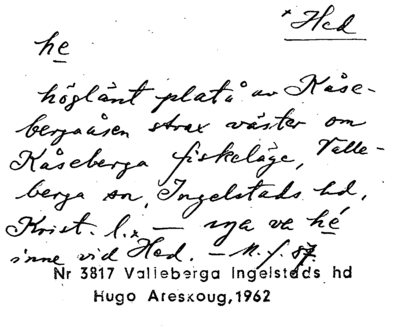 *Hed
he
höglänt platå av Kåse-
bergaåsen strax väster om
Kåseberga fiskeläge, Valle-
berga sn, Ingelstads hd,
Krist. l. — va hé
inne vid Hed. — M. f. 87.
Nr 3817 Valleberga Ingelstads hd
Hugo Areskoug, 1962